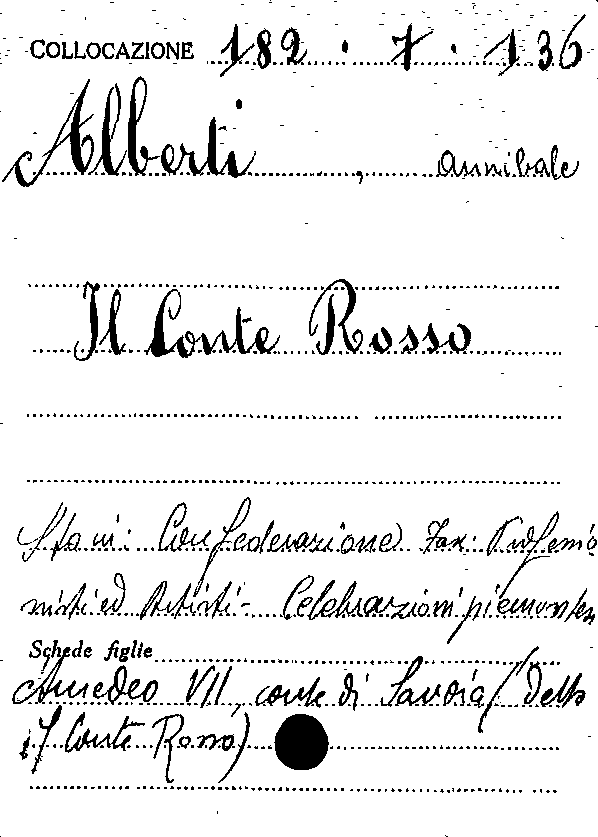 COLLOCAZIONE 182 . 7 . 136
Alberti , Annibale
Il Conte Rosso
Sta in: Confederazione Fax: Professio
nisti ed Artisti - Celebrazioni piemontesi
Schede figlie
Amedeo VII, conte di Savoia (detto
il Conte Rosso)